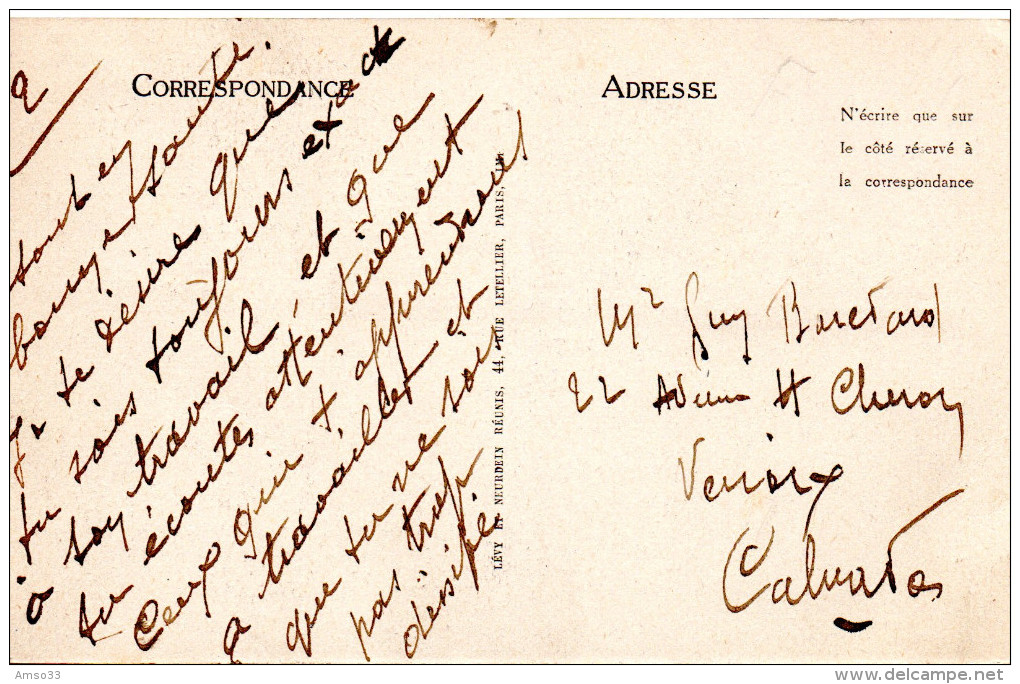 2
CORRESPONDANCE
tout en
bonne santé.
Je te désire que
tu sois toujours exact
à ton travail et que
tu écoutes attentivement
Ceux qui t'apprendront
a travailler et
que tu ne sois
pas trop
dissipé
LÉVY ET NEURDEIN RÉUNIS, 44, RUE LETELLIER, PARIS,
ADRESSE
N'écrire que sur
le côté réservé à
la correspondance
Mr Guy
22 Avenue H Cheron
Venoix
Calvados
Amso33
www.delcampe.net